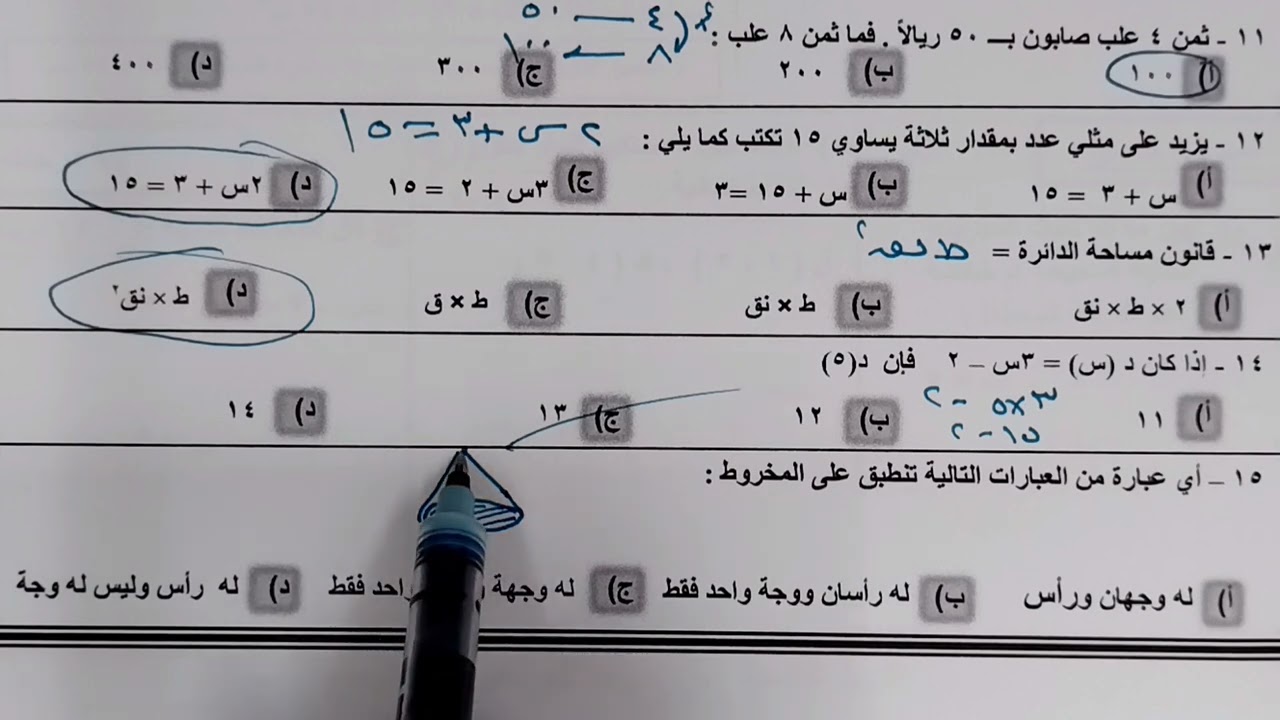 ٤ — ٥٠
٨ — ١٠٠
١١ - ثمن ٤ علب صابون بـ ٥٠ ريالاً . فما ثمن ٨ علب :
أ) ١٠٠ ب) ٢٠٠ ج) ٣٠٠ د) ٤٠٠
٢س + ٣ = ١٥
١٢ - يزيد على مثلي عدد بمقدار ثلاثة يساوي ١٥ تكتب كما يلي :
أ) س + ٣ = ١٥ ب) س + ١٥ =٣ ج) ٣س + ٢ = ١٥ د) ٢س + ٣ = ١٥
١٣ - قانون مساحة الدائرة = ط نق²
أ) ٢ × ط × نق ب) ط × نق ج) ط × ق د) ط × نق²
١٤ - إذا كان د (س) = ٣س – ٢ فإن د(٥)
أ) ١١ ب) ١٢ ج) ١٣ د) ١٤
٣×٥ - ٢
١٥ - ٢
١٥ – أي عبارة من العبارات التالية تنطبق على المخروط :
أ) له وجهان ورأس ب) له رأسان ووجة واحد فقط ج) له وجهة واحد فقط د) له رأس وليس له وجة